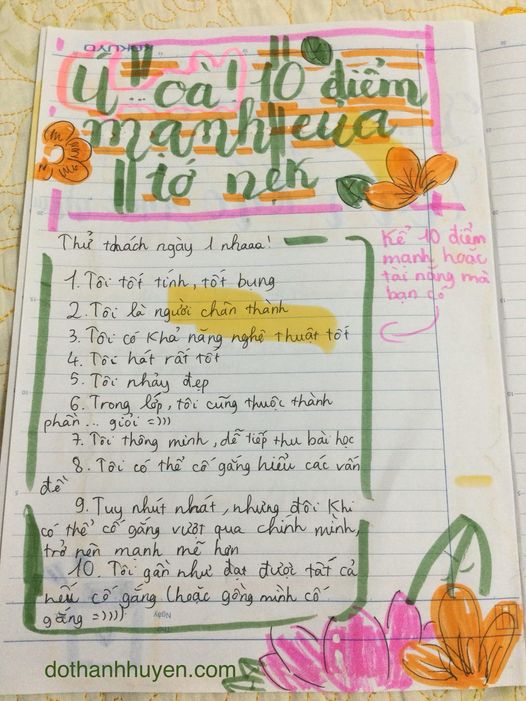 KOKUYO
Ú ... oà! 10 điểm
mạnh của
tớ nek
Thử thách ngày 1 nhaaa!
Kể 10 điểm
mạnh hoặc
tài năng mà
bạn có
1. Tôi tốt tính, tốt bụng
2. Tôi là người chân thành
3. Tôi có khả năng nghệ thuật tốt
4. Tôi hát rất tốt
5. Tôi nhảy đẹp
6. Trong lớp, tôi cũng thuộc thành
phần... giỏi =)))
7. Tôi thông minh, dễ tiếp thu bài học
8. Tôi có thể cố gắng hiểu các vấn
đề
9. Tuy nhút nhát, nhưng đôi khi
có thể cố gắng vượt qua chính mình,
trở nên mạnh mẽ hơn
10. Tôi gần như đạt được tất cả
nếu cố gắng (hoặc gồng mình cố
gắng =))))
Ngày
dothanhhuyen.com